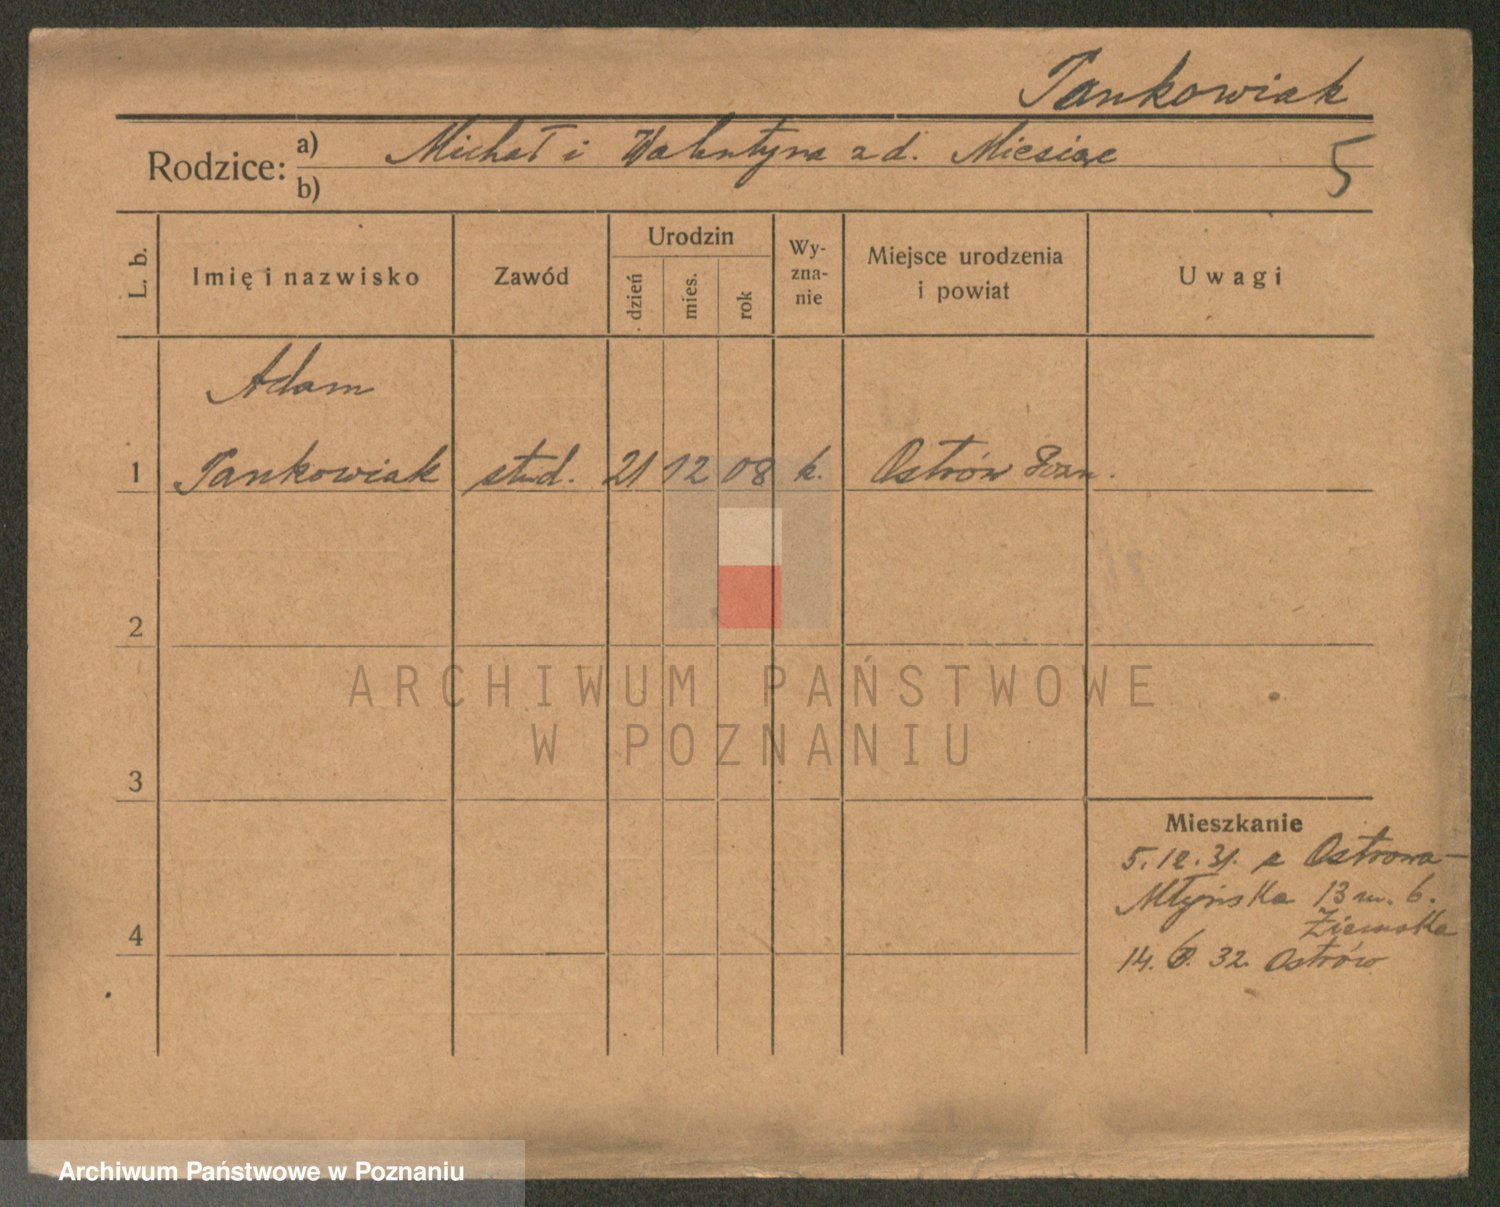 Pankowiak
Rodzice: a) Michał i Walentyna z d. Miesiąc
b)
5
L. b.
Imię i nazwisko
Zawód
Urodzin
dzień
mies.
rok
Wy-
zna-
nie
Miejsce urodzenia
i powiat
Uwagi
Adam
1 Pankowiak stud. 21 12 08 k. Ostrów Pozn.
2
3
4
Mieszkanie
5.12.31. z Ostrowa-
Młyńska 13 m. 6.
14. 32. Ostrów
ARCHIWUM PAŃSTWOWE
W POZNANIU
Archiwum Państwowe w Poznaniu